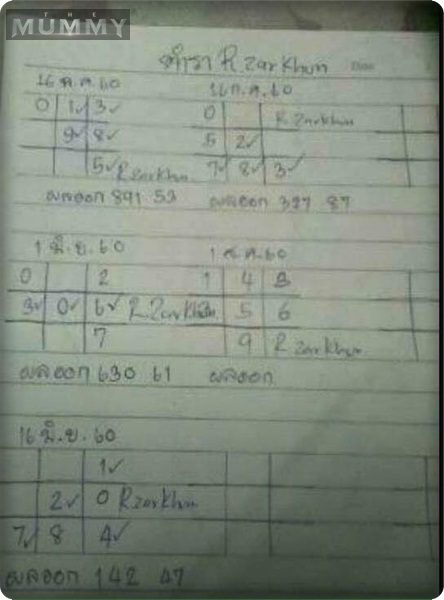 THE
MUMMY
ตำรา R.Zarkhun
16 ต.ค.60 16 ก.ค.60
0 1✓ 3✓ 0 R Zarkhun
9✓ 8✓ 5 2✓
5✓ R Zarkhun 7✓ 8✓ 3✓
ผลออก 891 53 ผลออก 327 87
1 มิ.ย.60 1 ส.ค.60
0 2 1 4 3
3✓ 0✓ 6✓ R Zarkhun 5 6
7 9 R Zarkhun
ผลออก 630 61 ผลออก
16 มิ.ย.60
1✓
2✓ 0 R Zarkhun
7✓ 8 4✓
ผลออก 142 47